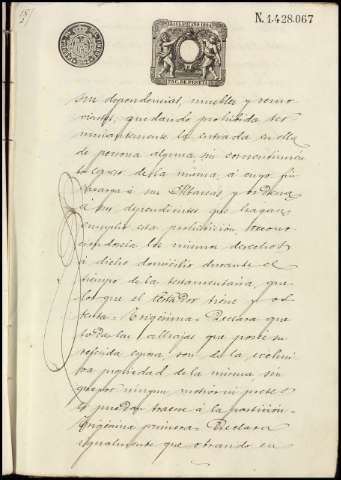 N. 1.428.067
sus dependencias, muebles y semo
vientes, quedando prohibida ter
minantemente la entrada en ella
de persona alguna sin consentimien
to expreso de la misma, á cuyo fin
encarga á sus Albaceas y ordena
á sus dependientes que hagan
cumplir esta prohibición, recono
ciendosela los mismos derechos
á dicho domicilio durante el
tiempo de la testamentaría, que
los que el testador tiene y os
tenta. Trigésima. Declara que
todas las alhajas que posee su
referida esposa, son de la exclusi
va propiedad de la misma sin
que por ningun motivo ni pretex
to puedan traerse á la partición.
Trigésima primera. Declara
igualmente que obrando en